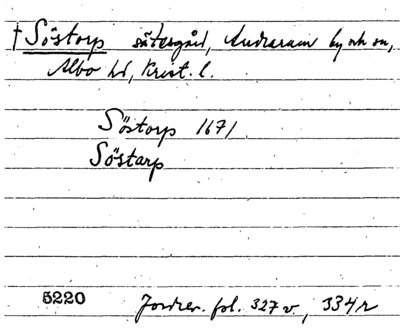 †Söstorp sätesgård, Andrarum by och sn,
Albo hd, Krist. l.
Söstorp 1671
Söstarp
5220 Jordrev. pl. 327 v, 334 r